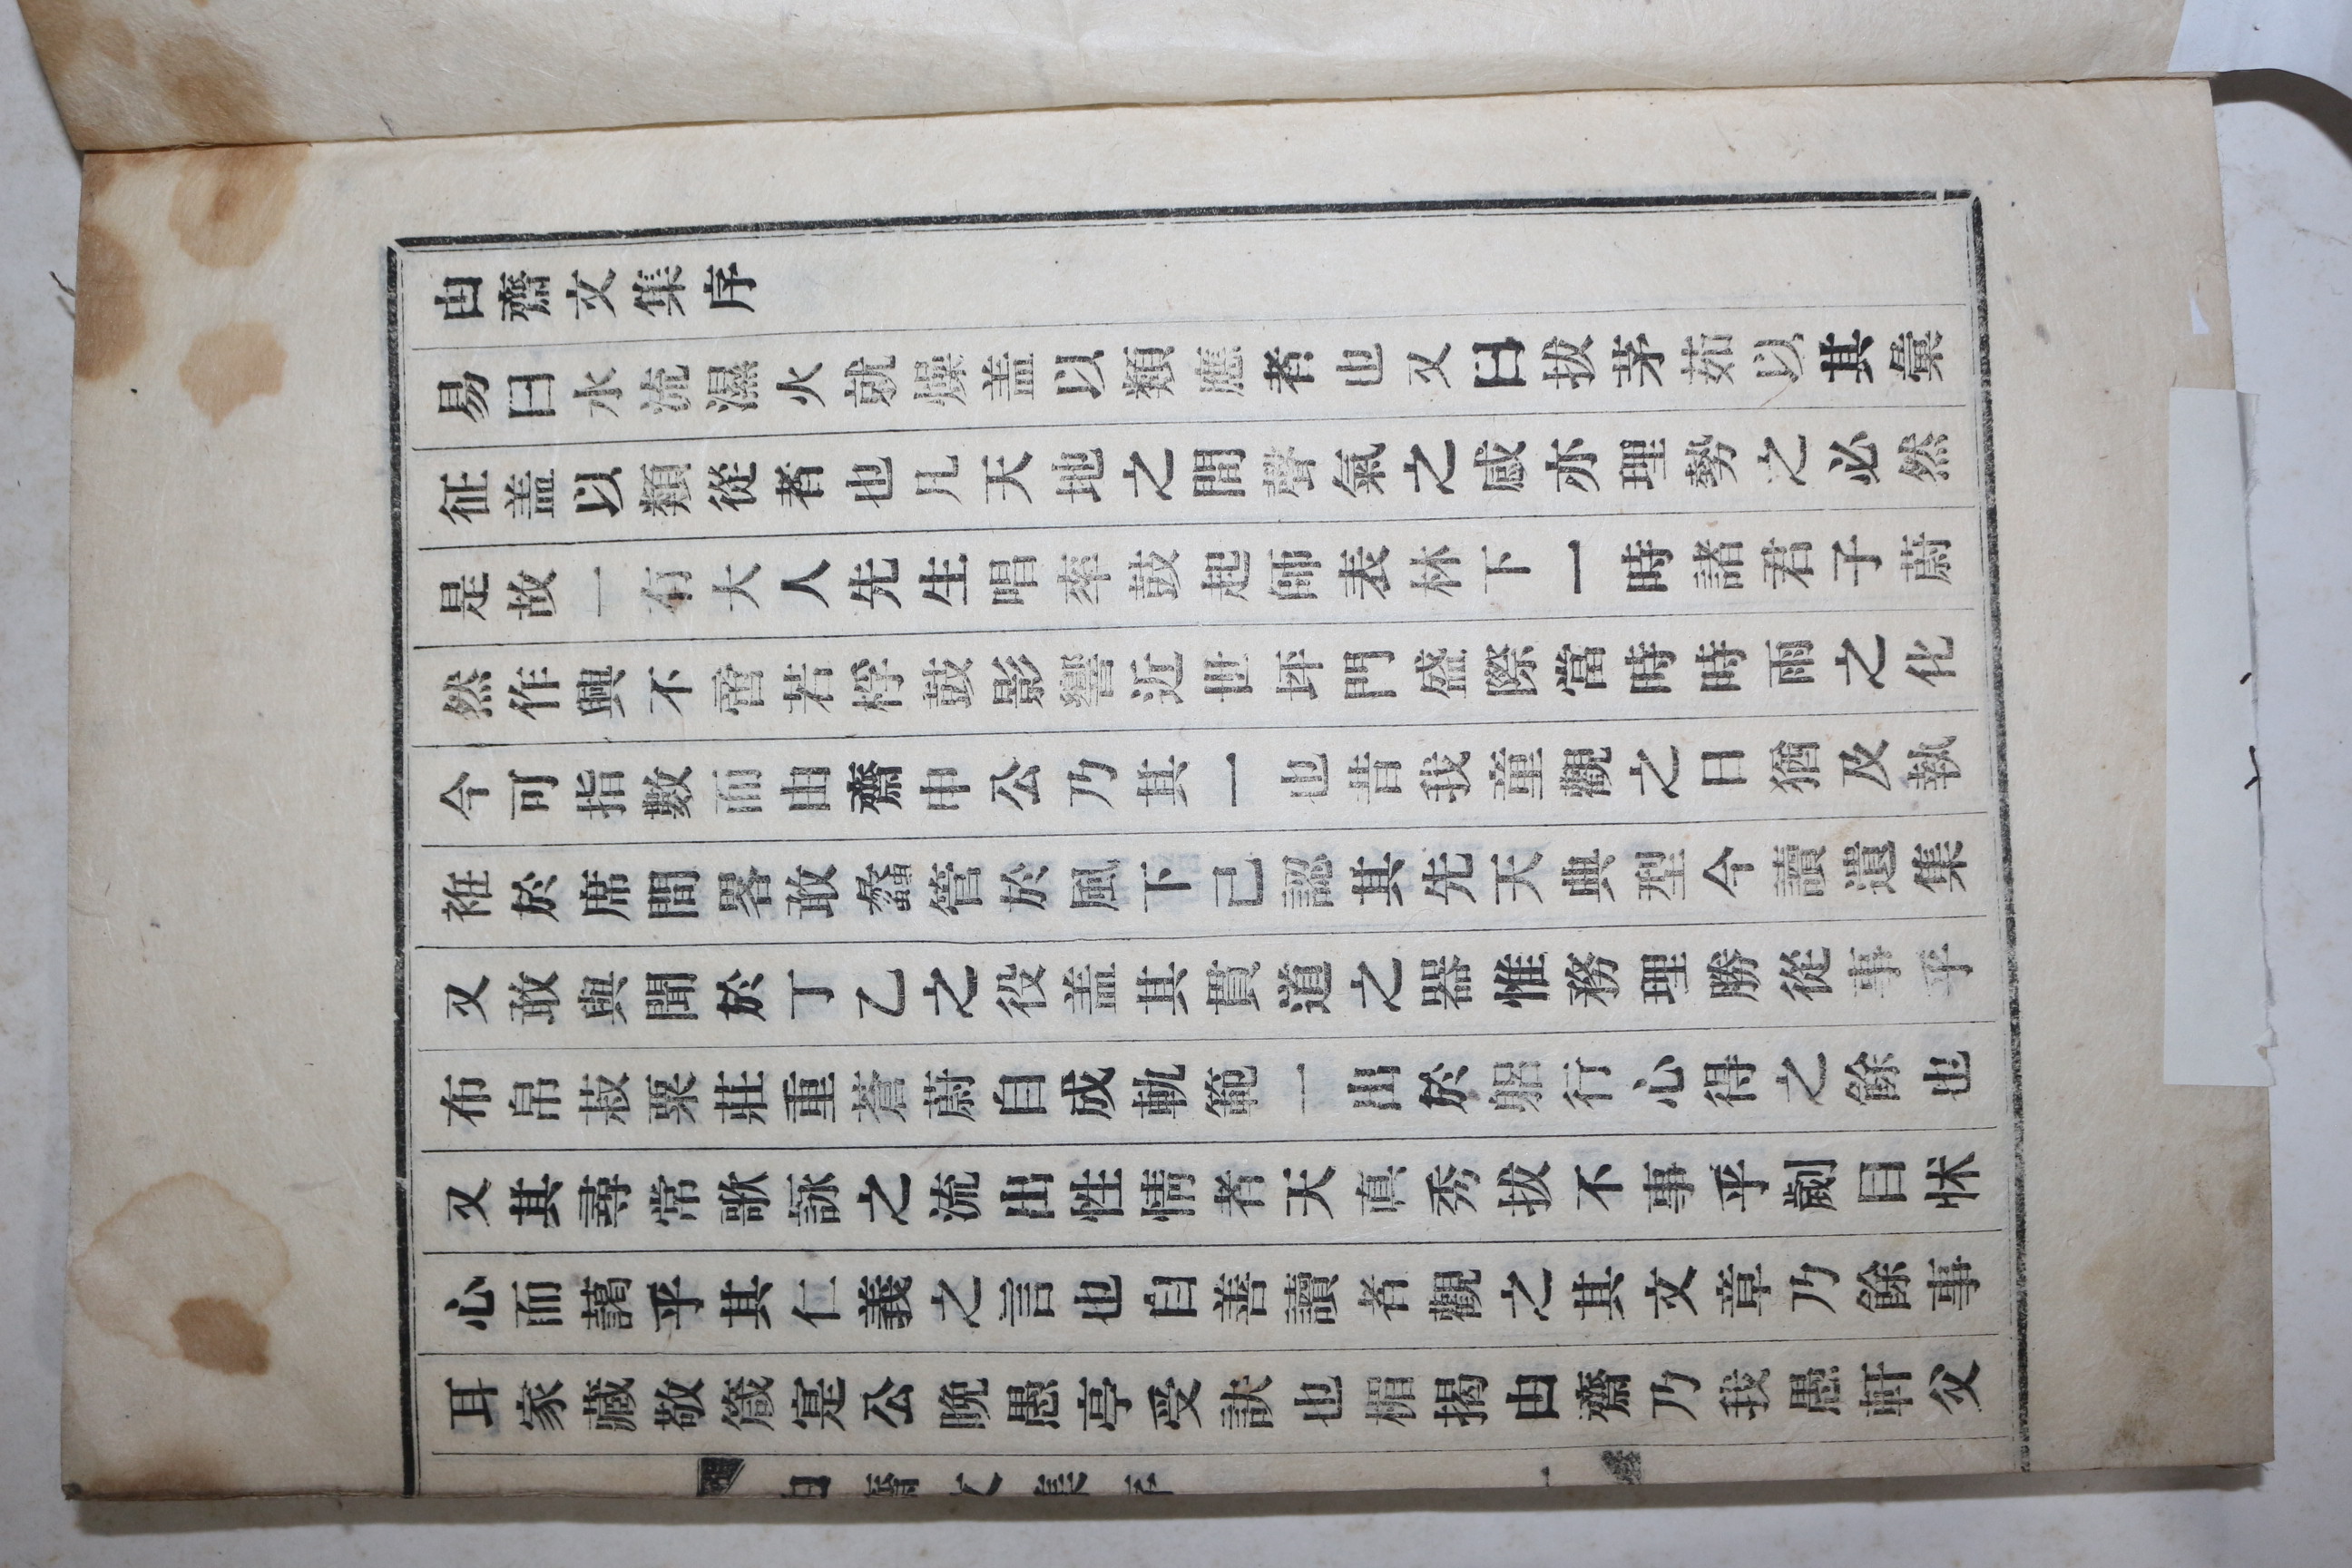 由齋文集序
易曰水流濕火就燥盖以類應者也又曰拔茅茹以其彙
征盖以類從者也凡天地之間聲氣之感亦理勢之必然
是故一有大人先生唱率鼓起師表林下一時諸君子蔚
然作興不啻若桴鼓影響近世坪門盛際當時時雨之化
今可指數而由齋申公乃其一也昔我童觀之日猶及執
袵於席間畧敢蠡管於風下已認其先天典型今讀遺集
又敢與聞於丁乙之役盖其貫道之器惟務理勝從事乎
布帛菽粟莊重蒼蔚自成軌範一出於躳行心得之餘也
又其尋常歌詠之流出性情者天真秀拔不事乎劌目怵
心而藹乎其仁義之言也自善讀者觀之其文章乃餘事
耳家藏敬箴寔公晩愚亭受訣也楣揭由齋乃我愚軒父
由齋文集序 一